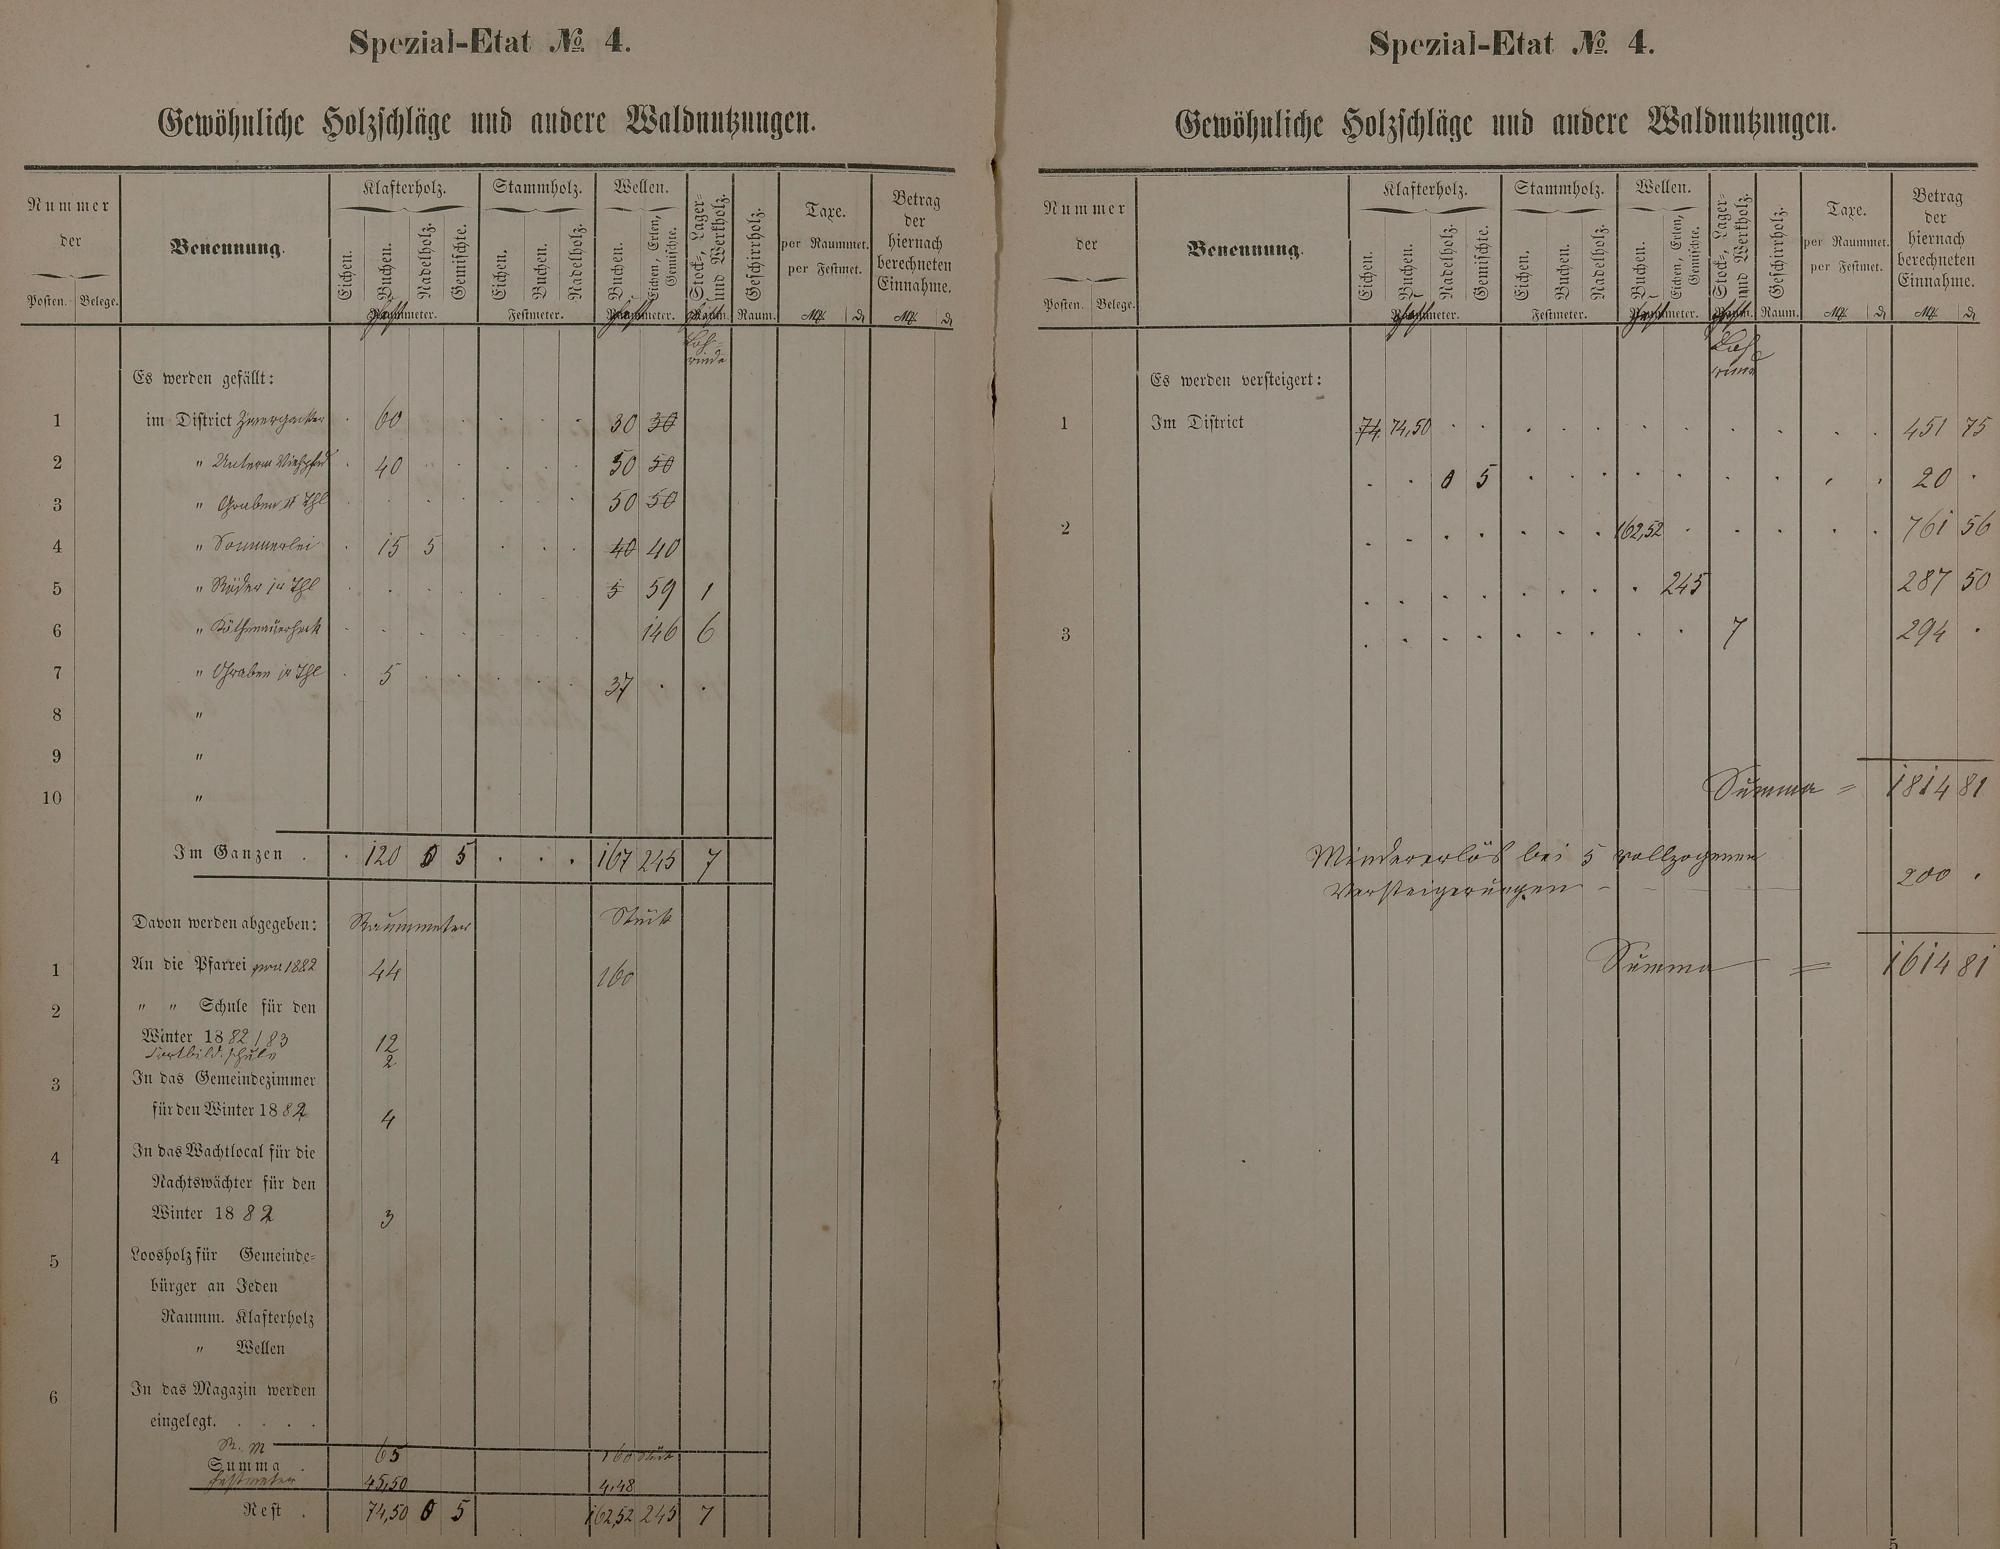 Spezial-Etat № 4.
Gewöhnliche Holzschläge und andere Waldnutzungen.
Nummer der
Posten. Belege.
Benennung.
Klafterholz.
Eichen. Buchen. Nadelholz. Gemischte.
Stammholz.
Eichen. Buchen. Nadelholz.
Festmeter.
Wellen.
Buchen. Eichen, Erlen, Gemischte.
Stock-, Lager- und Werkholz.
Geschirrholz.
Raum.
Taxe.
per Raummet.
per Festmet.
Betrag der hiernach berechneten Einnahme.
Loh-
rinde
Es werden gefällt:
1 im District 60 30 30
2 " Unterm Viehpfad 40 50 50
3 " Graben 50 50
4 " Sommerlei 15 5 40 40
5 " Röder jr Thl 5 59 1
6 " 146 6
7 " Graben jr Thl 5 37
8 "
9 "
10 "
Im Ganzen . 120 0 5 167 245 7
Davon werden abgegeben: Raummeter Stück
1 An die Pfarrei pro 1882 44 160
2 " " Schule für den
Winter 1882/83 12
Fortbild. schule 2
3 In das Gemeindezimmer
für den Winter 1882 4
4 In das Wachtlocal für die
Nachtswächter für den
Winter 1882 3
5 Loosholz für Gemeinde-
bürger an Jeden
Raumm. Klafterholz
" Wellen
6 In das Magazin werden
eingelegt. . . . .
R. M 65 160 Stück
Summa .
Festmeter 45,50 4,48
Rest . 74,50 0 5 162,52 245 7
Spezial-Etat № 4.
Gewöhnliche Holzschläge und andere Waldnutzungen.
Nummer der
Posten. Belege.
Benennung.
Klafterholz.
Eichen. Buchen. Nadelholz. Gemischte.
Stammholz.
Eichen. Buchen. Nadelholz.
Festmeter.
Wellen.
Buchen. Eichen, Erlen, Gemischte.
Stock-, Lager- und Werkholz.
Geschirrholz.
Raum.
Taxe.
per Raummet.
per Festmet.
Betrag der hiernach berechneten Einnahme.
Loh
rinde
Es werden versteigert:
1 Im District 74 74,50 451 75
0 5 20 .
2 162,52 761 56
245 287 50
3 7 294 .
Summa = 1814 81
Mindererlös bei 5 vollzogenen
Versteigerungen 200 .
Summa = 1614 81
5